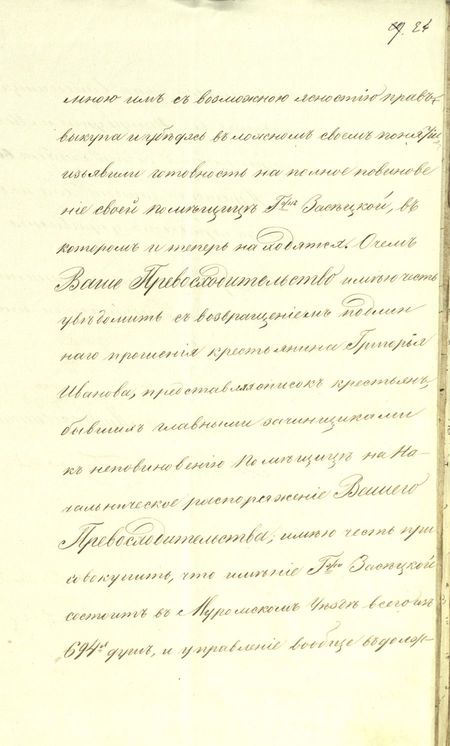 24
мною имъ съ возможною ясностію правъ
выкупа и убѣдясь въ ложномъ своемъ понятіи
изъявили готовность на полное повинове
ніе своей помѣщицѣ Гжѣ Засѣцкой, въ
которомъ и теперь находятся. О чемъ
Ваше Превосходительство имѣю честь
увѣдомить съ возвращеніемъ подлин
наго прошенія крестьянина Григорья
Иванова, представляя списокъ крестьянъ,
бывшимъ главными зачинщиками
къ неповиновенію помѣщицѣ на На-
чальническое распоряженіе Вашего
Превосходительства, имѣю честь при
совокупить, что имѣніе Гжи Засѣцкой
состоитъ въ Муромскомъ Уѣздѣ всего изъ
694х душъ, и управленіе вообще въ долж-